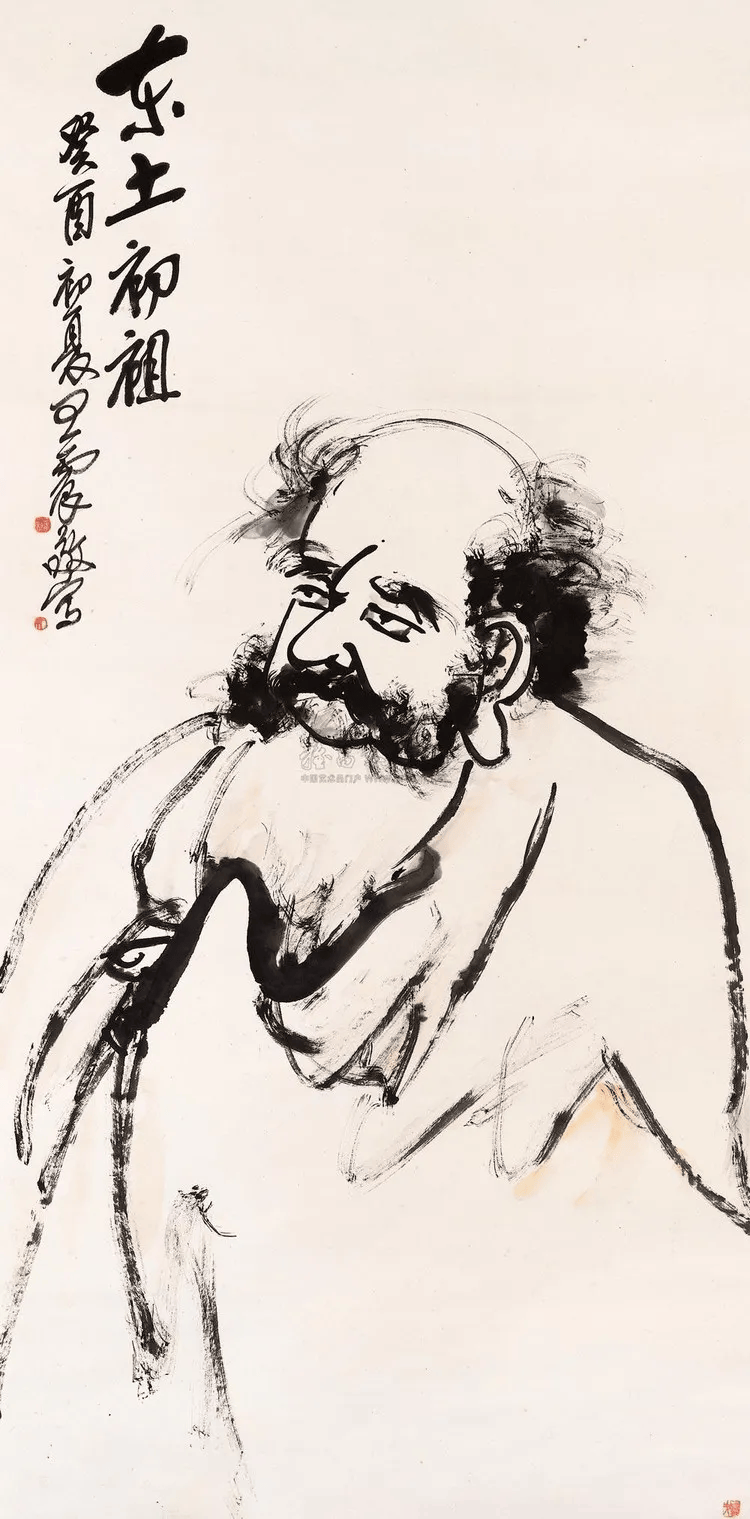 東土初祖
癸酉初夏王震敬寫
中国艺术品门户